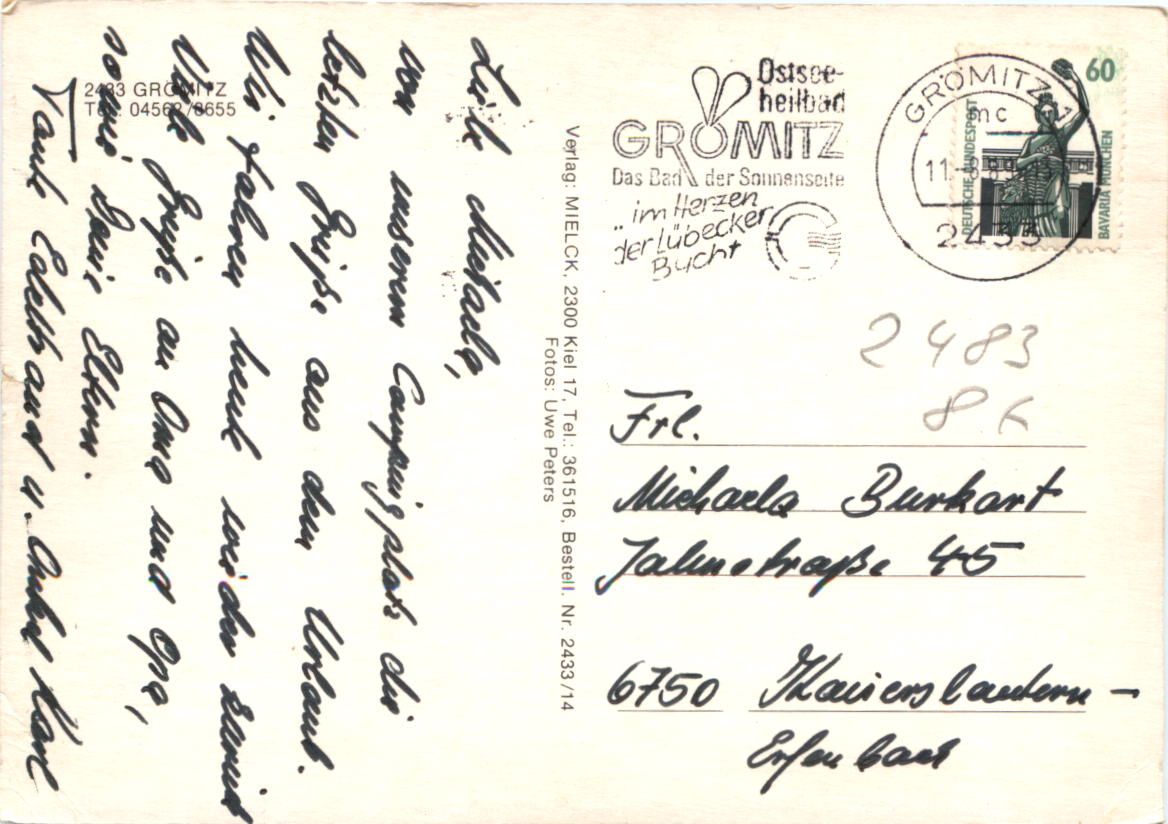 2433 GRÖMITZ
Tel. 04562/8655
Liebe Michaela,
von unserem Campingplatz die
letzten Grüße aus dem Urlaub.
Wir fahren heute wieder zurück
Viele Grüße an Oma und Opa,
sowie Deine Eltern.
Tante Edelhaud u. Onkel Karl
Verlag: MIELCK, 2300 Kiel 17, Tel.: 361516, Bestell. Nr. 2433/14
Fotos: Uwe Peters
Ostsee-
heilbad
GRÖMITZ
Das Bad der Sonnenseite
„im Herzen
der Lübecker
Bucht
GRÖMITZ 1
mc
11.-8.8
2433
60
DEUTSCHE BUNDESPOST
BAVARIA MÜNCHEN
2483
86
Frl.
Michaela Burkart
Jahnstraße 45
6750 Kaiserslautern-
Erfenbach